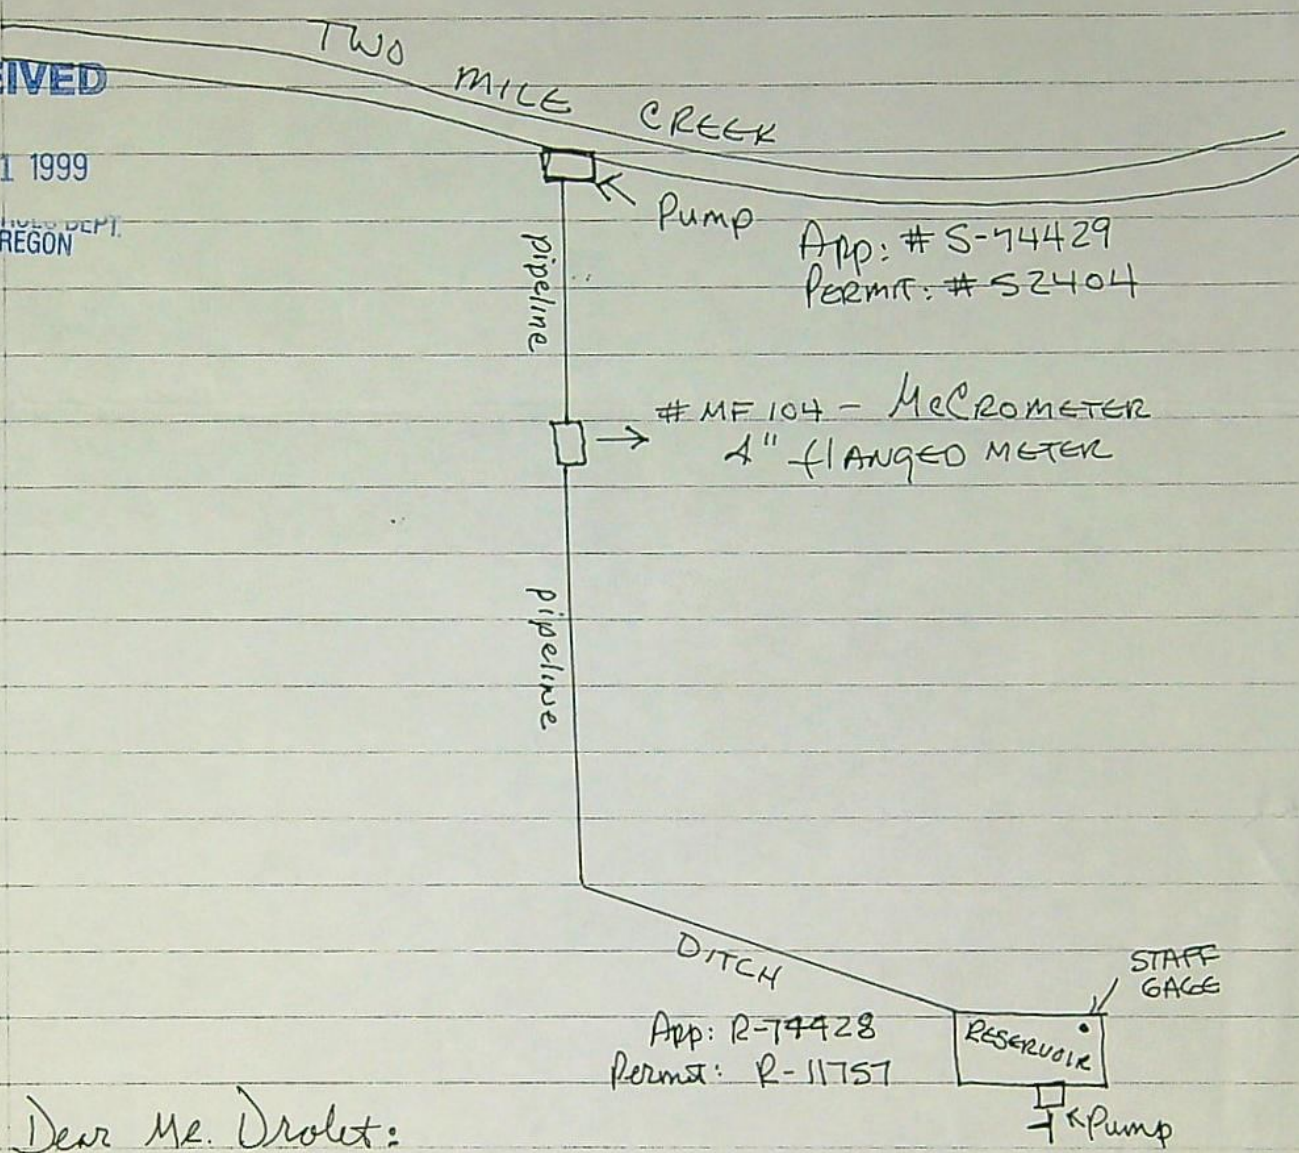 TWO MILE CREEK
EIVED
1 1999
DEPT.
REGON
Pump
App: # S-74429
PERMIT: # 52404
pipeline
# MF 104 - McCROMETER
4" flANGED METER
pipeline
DITCH
STAFF
GAGE
App: R-74428
Permit: R-11757
RESERVOIR
Pump
Dear Mr. Drolet: